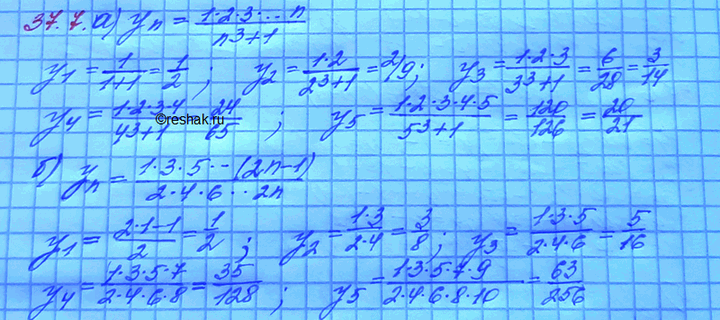 37.7. а) yₙ = (1·2·3·…·n)/(n³+1)
y₁ = 1/(1+1) = 1/2 ; y₂ = (1·2)/(2³+1) = 2/9 ; y₃ = (1·2·3)/(3³+1) = 6/28 = 3/14
y₄ = (1·2·3·4)/(4³+1) = 24/65 ; y₅ = (1·2·3·4·5)/(5³+1) = 120/126 = 20/21
©reshak.ru
б) yₙ = (1·3·5…(2n-1))/(2·4·6…2n)
y₁ = (2·1-1)/2 = 1/2 ; y₂ = (1·3)/(2·4) = 3/8 ; y₃ = (1·3·5)/(2·4·6) = 5/16
y₄ = (1·3·5·7)/(2·4·6·8) = 35/128 ; y₅ = (1·3·5·7·9)/(2·4·6·8·10) = 63/256